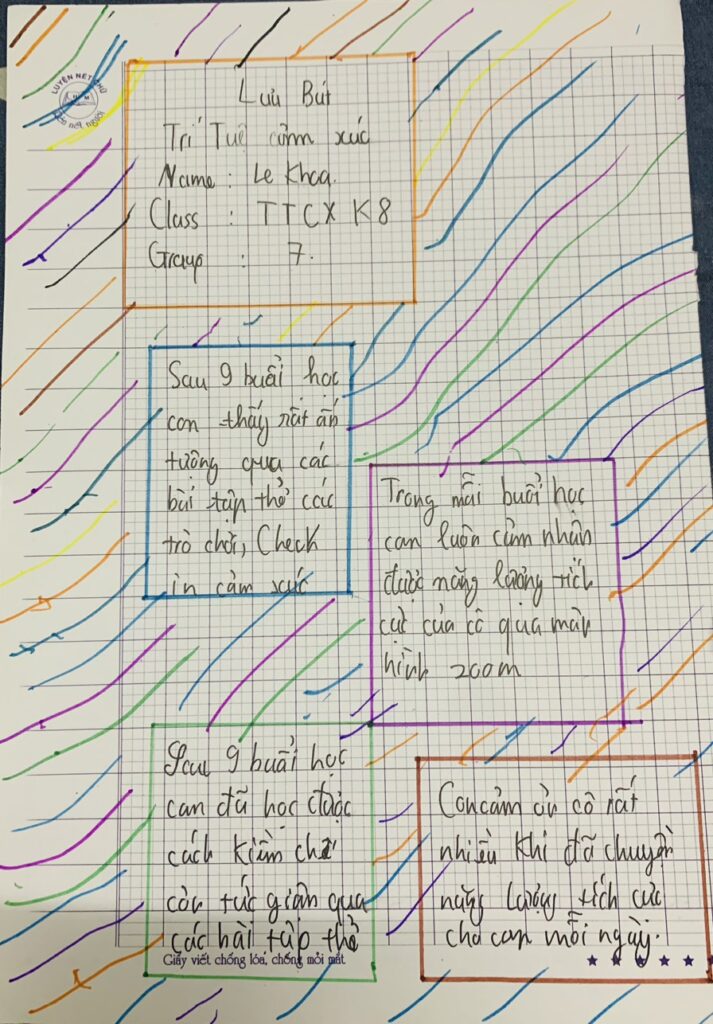 LUYỆN NÉT CHỮ
RÈN NẾT NGƯỜI
Lưu Bút
Trí Tuệ cảm xúc
Name : Le Khoa
Class : TTCX K8
Group : 7.
Sau 9 buổi học
con thấy rất ấn
tượng qua các
bài tập thể các
trò chơi, Check
in cảm xúc
Trong mỗi buổi học
con luôn cảm nhận
được năng lượng tích
cực của cô qua màn
hình zoom
Sau 9 buổi học
con đã học được
cách kiềm chế
cơn tức giận qua
các bài tập thể
Giấy viết chống lóa, chống mỏi mắt
Con cảm ơn cô rất
nhiều khi đã chuyền
năng lượng tích cực
cho con mỗi ngày.